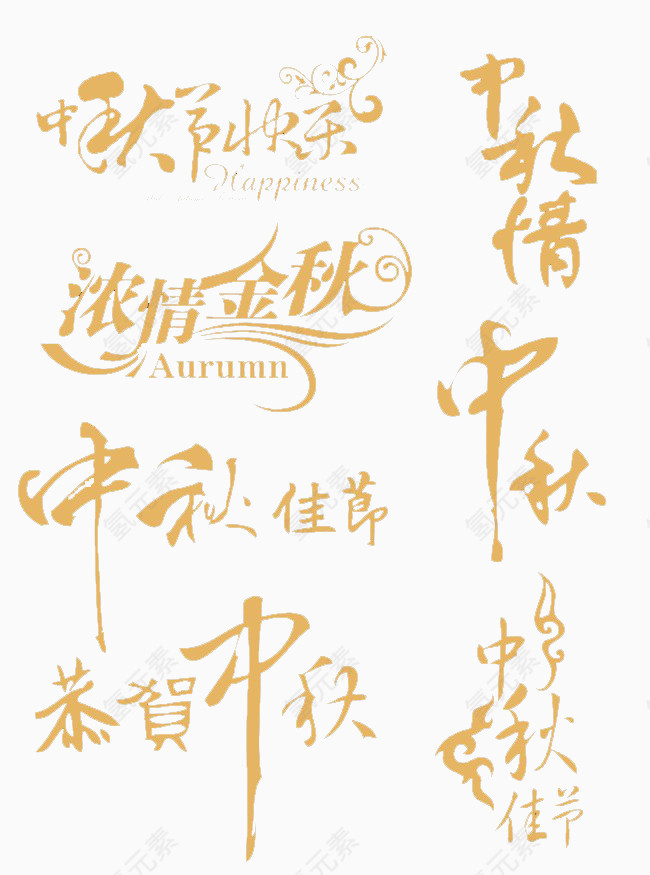 中秋节快乐
Happiness
浓情金秋
Aurumn
中秋佳節
恭賀中秋
中秋情
中秋
中秋佳节
氢元素